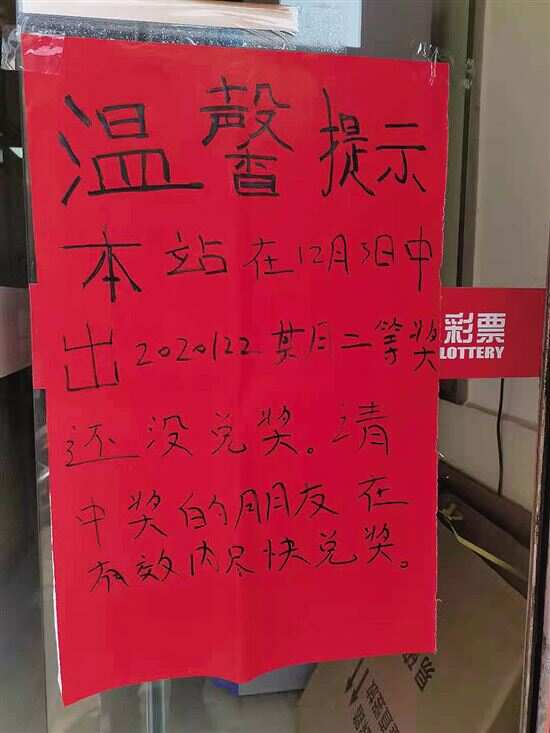 温馨提示
本站在12月3日中
出2020122期二等奖
还没兑奖。请
中奖的朋友在
有效内尽快兑奖。
彩票
LOTTERY